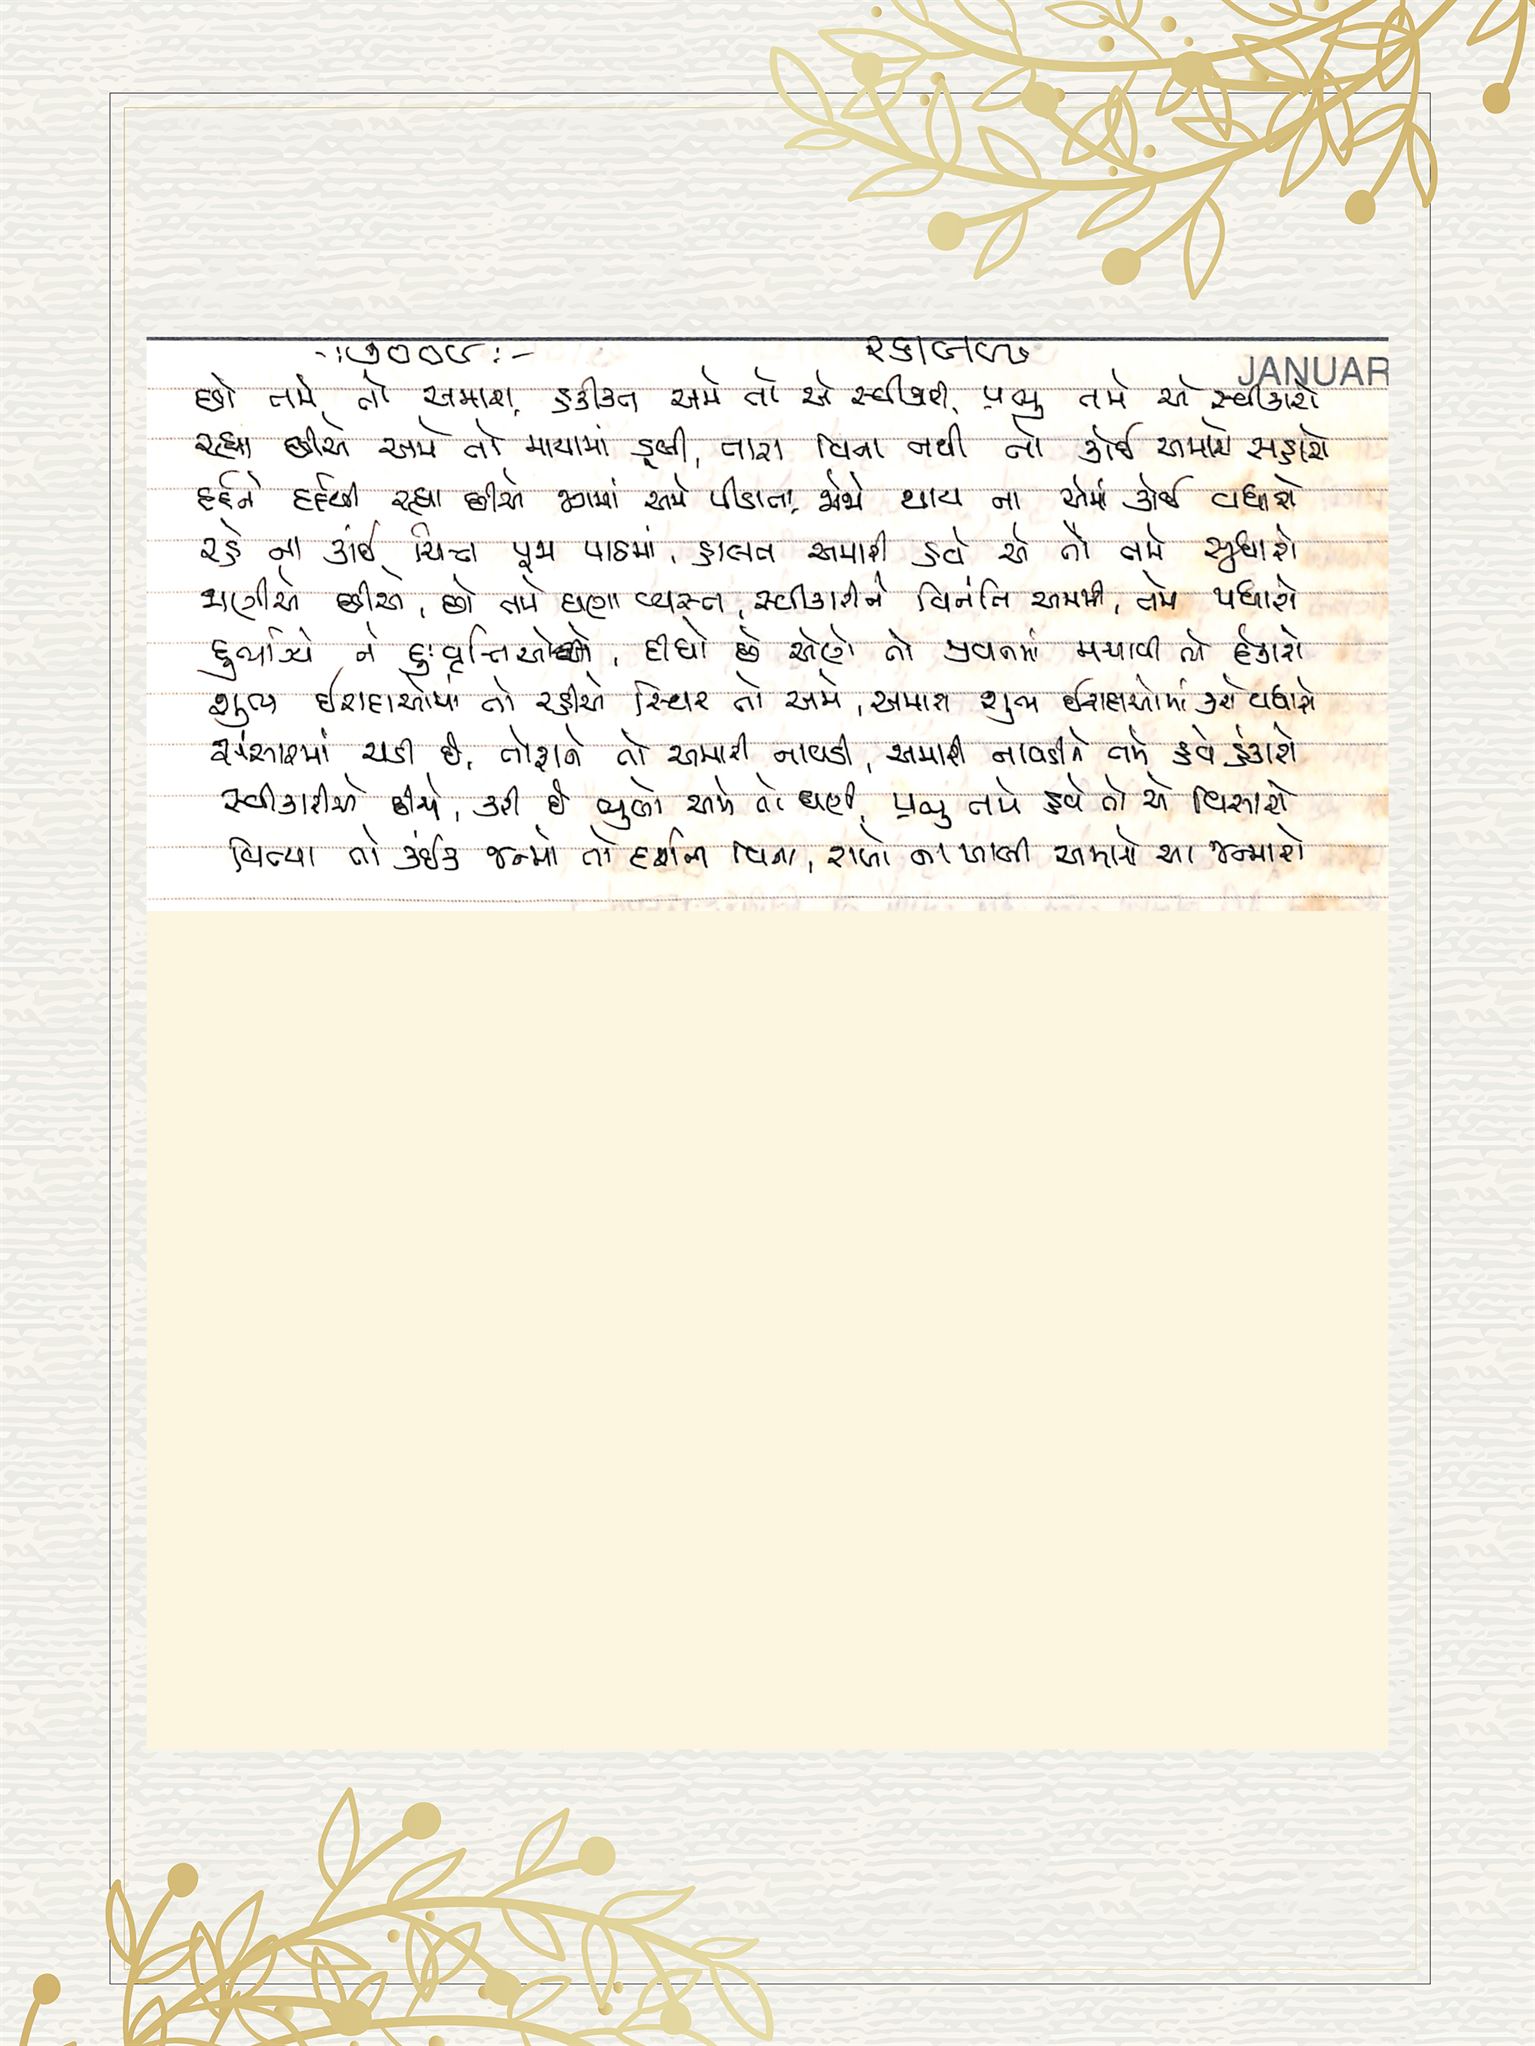 -:૭૦૦૯:-
JANUAR
છો તમે તો અમારા, હકીકત અમે તો એ સ્વીકારી, પ્રભુ તમે એ સ્વીકારો
રહ્યા છીએ અમે તો માયામાં ડૂબી, તારા વિના નથી તો કોઈ અમારો સહારો
દર્દને દર્દથી રહ્યા છીએ જગમાં અમે પીડાતા, જોજે થાય ના એમાં કોઈ વધારો
રહે ના કાંઈ ચિત્ત પૂજા પાઠમાં, હાલત અમારી હવે એ તો તમે સુધારો
જાણીએ છીએ, છો તમે ઘણા વ્યસ્ત, સ્વીકારીને વિનંતિ અમારી, તમે પધારો
દુર્ભાગ્યે ને દુઃવૃત્તિઓએ, દીધો છે એણે તો જીવનમાં મચાવી તો હેકારો
શુભ ઈરાદાઓમાં તો રહીએ સ્થિર તો અમે, અમારા શુભ ઈરાદાઓમાં કરો વધારો
સંસારમાં ચડી છે, તોફાને તો અમારી નાવડી, અમારી નાવડીને તમે હવે હંકારો
સ્વીકારીએ છીએ, કરી છે ભુલો અમે તો ઘણી, પ્રભુ તમે હવે તો એ વિસારો
વિત્યા તો કંઈક જન્મો તો દર્શન વિના, રાખો ના ખાલી અમારો આ જન્મારો